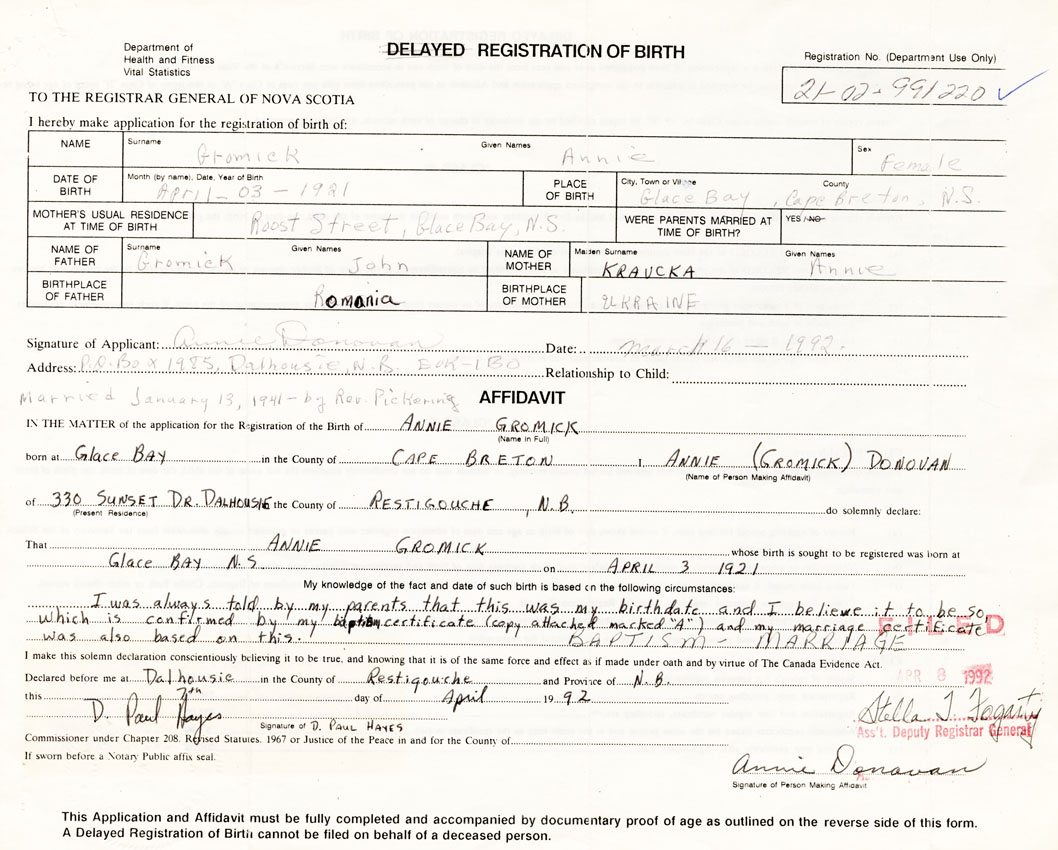 Department of
Health and Fitness
Vital Statistics
DELAYED REGISTRATION OF BIRTH
Registration No. (Department Use Only)
21-02-991220
TO THE REGISTRAR GENERAL OF NOVA SCOTIA
I hereby make application for the registration of birth of:
NAME Surname Gromick Given Names Annie Sex Female
DATE OF BIRTH Month (by name), Date, Year of Birth April-03-1921 PLACE OF BIRTH City, Town or Village Glace Bay, County Cape Breton, N.S.
MOTHER'S USUAL RESIDENCE AT TIME OF BIRTH Roost Street, Glace Bay, N.S. WERE PARENTS MARRIED AT TIME OF BIRTH? YES / NO
NAME OF FATHER Surname Gromick Given Names John NAME OF MOTHER Maiden Surname KRAVCKA Given Names Annie
BIRTHPLACE OF FATHER Romania BIRTHPLACE OF MOTHER UKRAINE
Signature of Applicant: Annie Donovan Date: March 16 - 1992.
Address: P.O. Box 1985, Dalhousie, N.B. E0K-1B0 Relationship to Child:
Married January 13, 1941 - by Rev. Pickering
AFFIDAVIT
IN THE MATTER of the application for the Registration of the Birth of ANNIE GROMICK
(Name in Full)
born at Glace BAY in the County of CAPE BRETON I, ANNIE (GROMICK) DONOVAN
(Name of Person Making Affidavit)
of 330 SUNSET DR. DALHOUSIE the County of RESTIGOUCHE, N.B. do solemnly declare:
(Present Residence)
That ANNIE GROMICK whose birth is sought to be registered was born at
Glace BAY N.S on APRIL 3 1921
My knowledge of the fact and date of such birth is based on the following circumstances:
I was always told by my parents that this was my birthdate and I believe it to be so,
which is confirmed by my baptism certificate (copy attached marked "A") and my marriage certificate
was also based on this. BAPTISM - MARRIAGE
FILED
I make this solemn declaration conscientiously believing it to be true, and knowing that it is of the same force and effect as if made under oath and by virtue of The Canada Evidence Act.
Declared before me at Dalhousie in the County of Restigouche and Province of N.B.
APR 8 1992
this 7th day of April 1992
D. Paul Hayes
Signature of D. PAUL HAYES
Stella T. Fogarty
Ass't. Deputy Registrar General
Commissioner under Chapter 208. Revised Statures. 1967 or Justice of the Peace in and for the County of
If sworn before a Notary Public affix seal.
Annie Donovan
Signature of Person Making Affidavit
This Application and Affidavit must be fully completed and accompanied by documentary proof of age as outlined on the reverse side of this form.
A Delayed Registration of Birth cannot be filed on behalf of a deceased person.